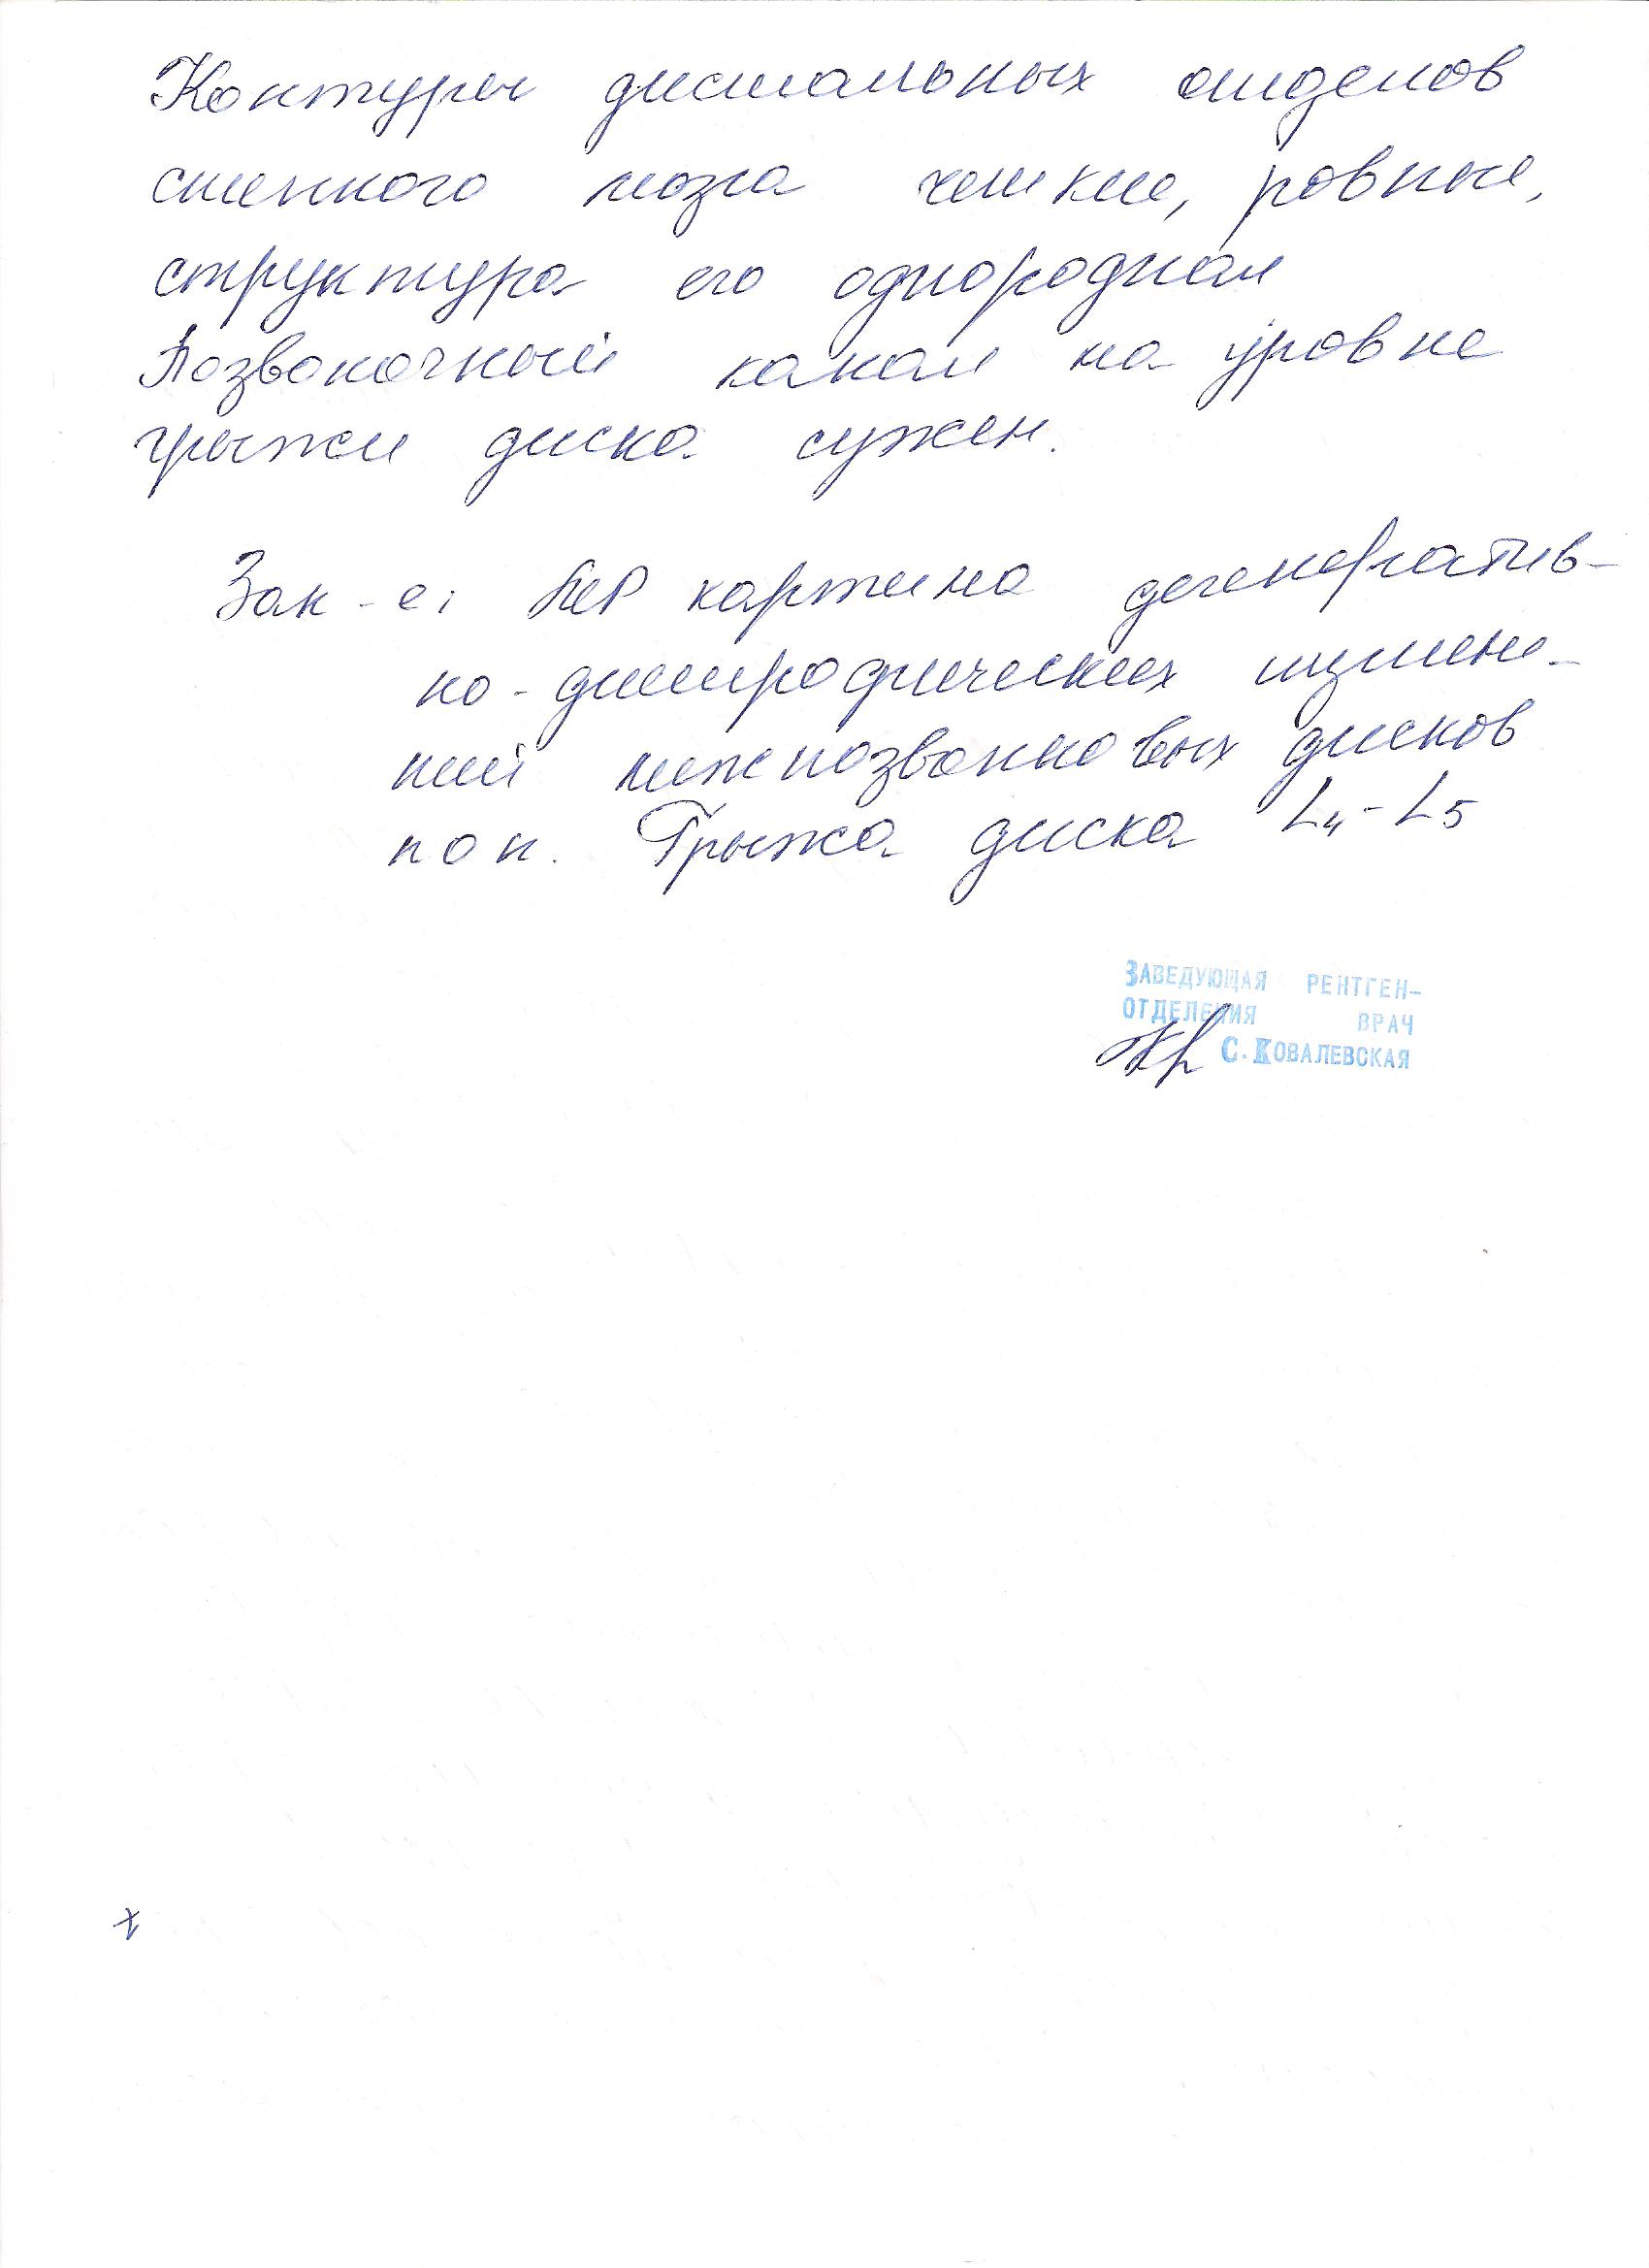 Контуры дистальных отделов
спинного мозга четкие, ровные,
структура его однородная
Позвоночный канал на уровне
грыжи диска сужен.
Зак-е: МР картина дегенератив-
но-дистрофических измене-
ний межпозвонковых дисков
поп. Грыжа диска L4-L5
ЗАВЕДУЮЩАЯ РЕНТГЕН-
ОТДЕЛЕНИЯ ВРАЧ
С. КОВАЛЕВСКАЯ